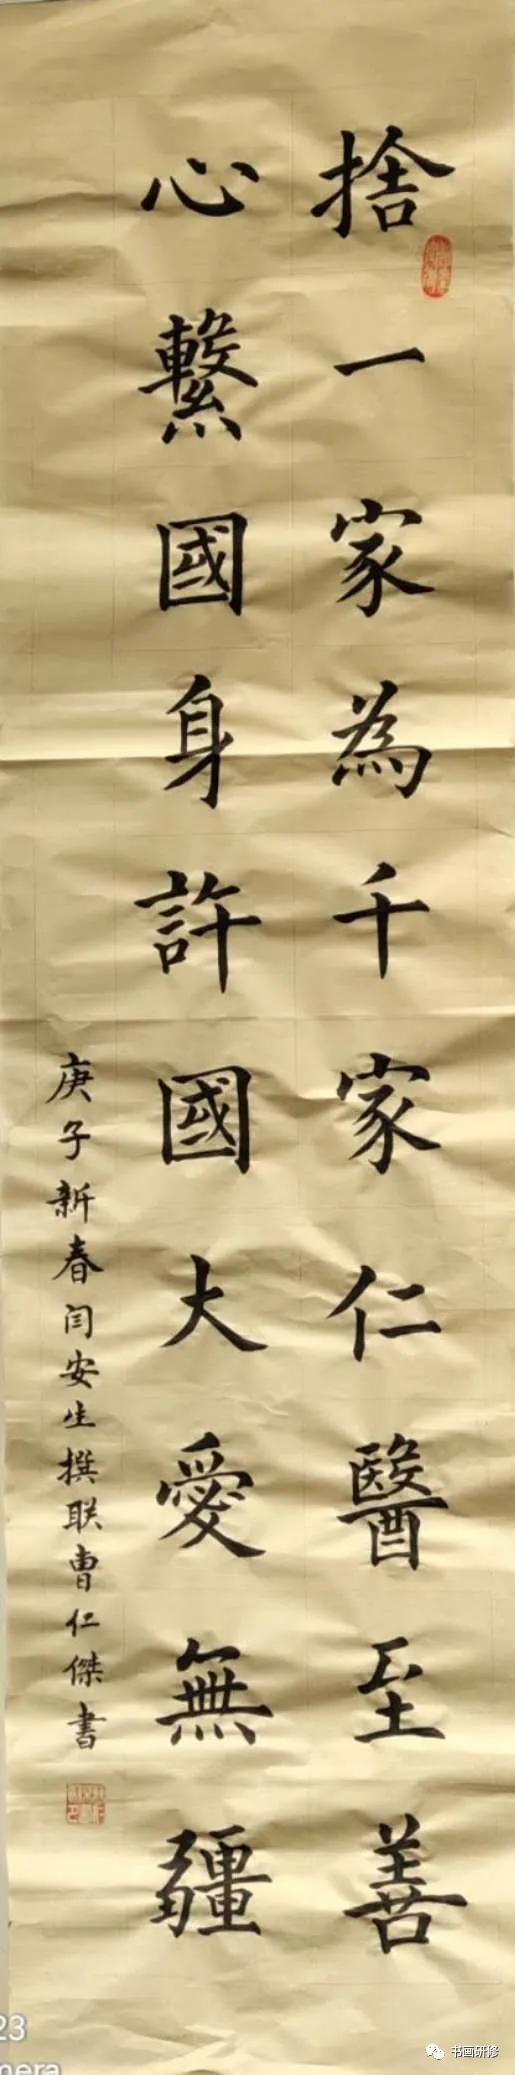 捨一家為千家仁醫至善
心繫國身許國大愛無疆
庚子新春闫安生撰联曹仁傑書
23
mera
书画研修